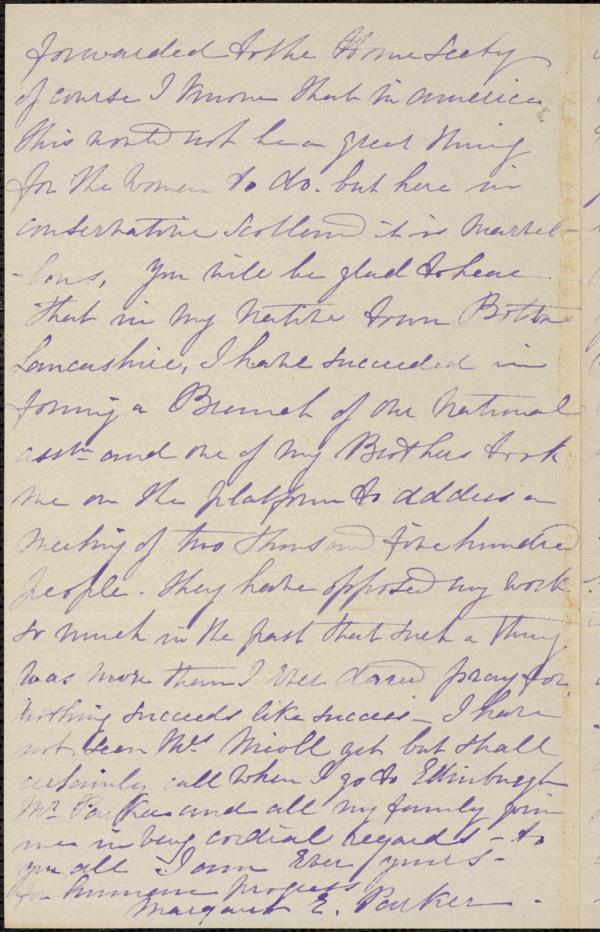 forwarded to the Home Secty
of course I know that in America
this would not be a great thing
for the women to do. but here in
conservative Scotland it is marvel-
-lous, you will be glad to hear
that in my native town Bolton
Lancashire, I have succeeded in
forming a Branch of our National
asstn and one of my Brothers took
me on the platform to address a
meeting of two thousand five hundred
people. they have opposed my work
so much in the past that such a thing
was more than I ever dared pray for,
nothing succeeds like success - I have
not seen Mrs Nicoll yet but shall
certainly call when I go to Edinburgh
Mr Parker and all my family join
me in very cordial regards - to
you all I am Ever yours -
for human progress
Margaret E. Parker - .